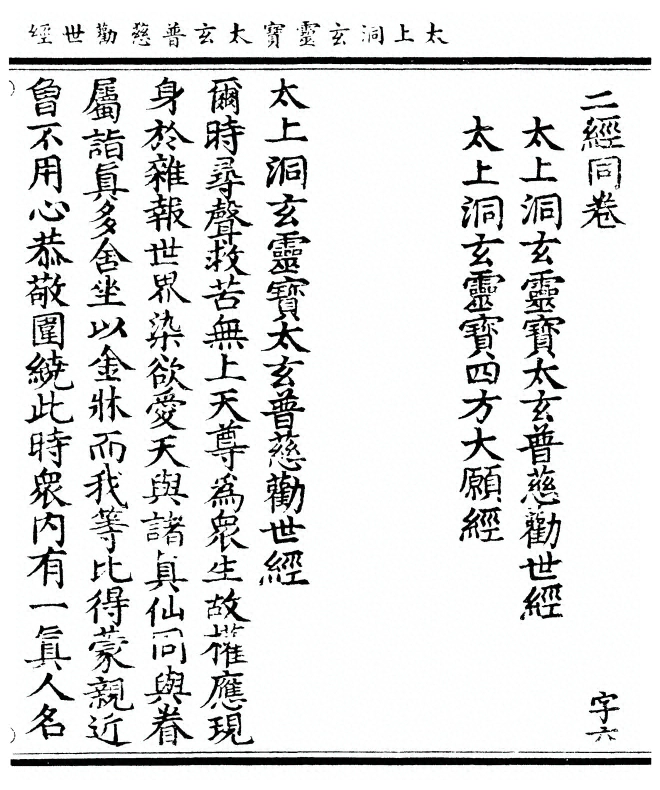 太上洞玄靈寶太玄普慈勸世經
二經同卷
字六
太上洞玄靈寶太玄普慈勸世經
太上洞玄靈寶四方大願經
太上洞玄靈寶太玄普慈勸世經
爾時尋聲救苦無上天尊為眾生故權應現
身於雜報世界染欲愛天與諸眞仙同與眷
屬詣眞多舍坐以金牀而我等比得蒙親近
魯不用心恭敬圍繞此時眾內有一眞人名